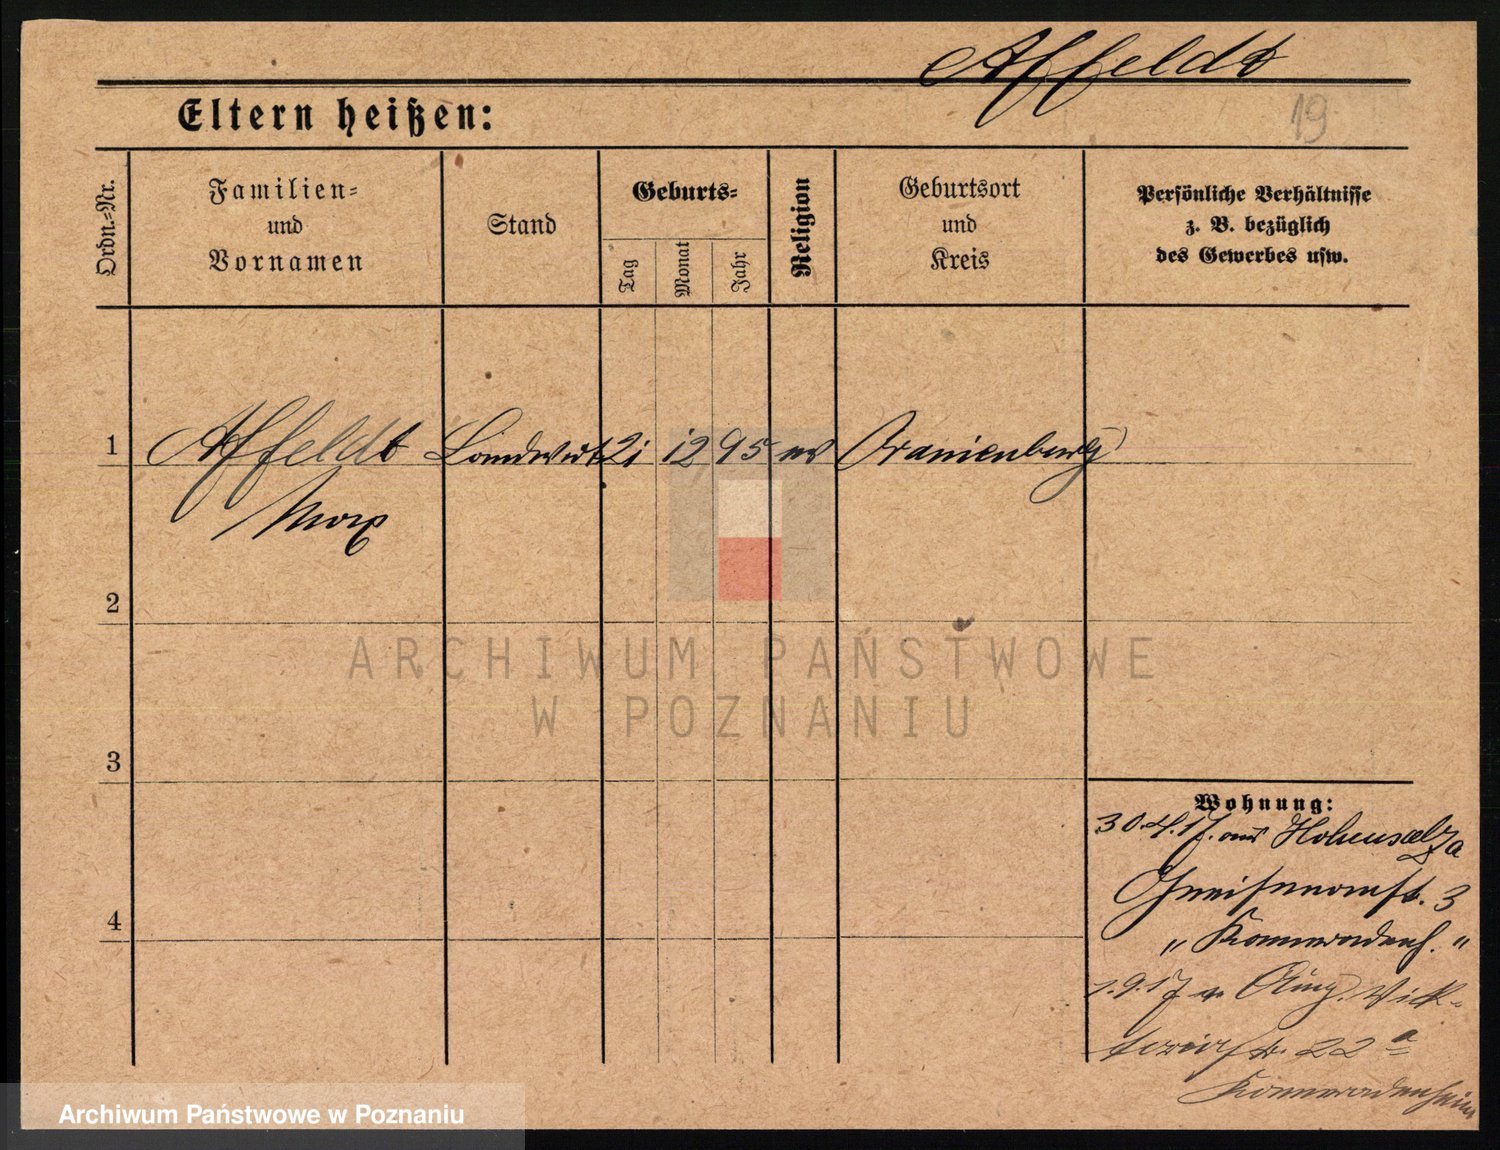 Affeldt
Eltern heißen:
19
Ordn.=Nr.
Familien=
und
Vornamen
Stand
Geburts=
Tag
Monat
Jahr
Religion
Geburtsort
und
Kreis
Persönliche Verhältnisse
z. B. bezüglich
des Gewerbes usw.
1 Affeldt Landwirt 21 12 95 ev Oranienburg
Max
2
3
4
ARCHIWUM PAŃSTWOWE
W POZNANIU
Wohnung:
30.4.17. aus Hohensalza
Gneisenaustr. 3
„ Kameradenh. "
1.9.17 Vik-
toriastr. 22 a
Kameradenheim
Archiwum Państwowe w Poznaniu